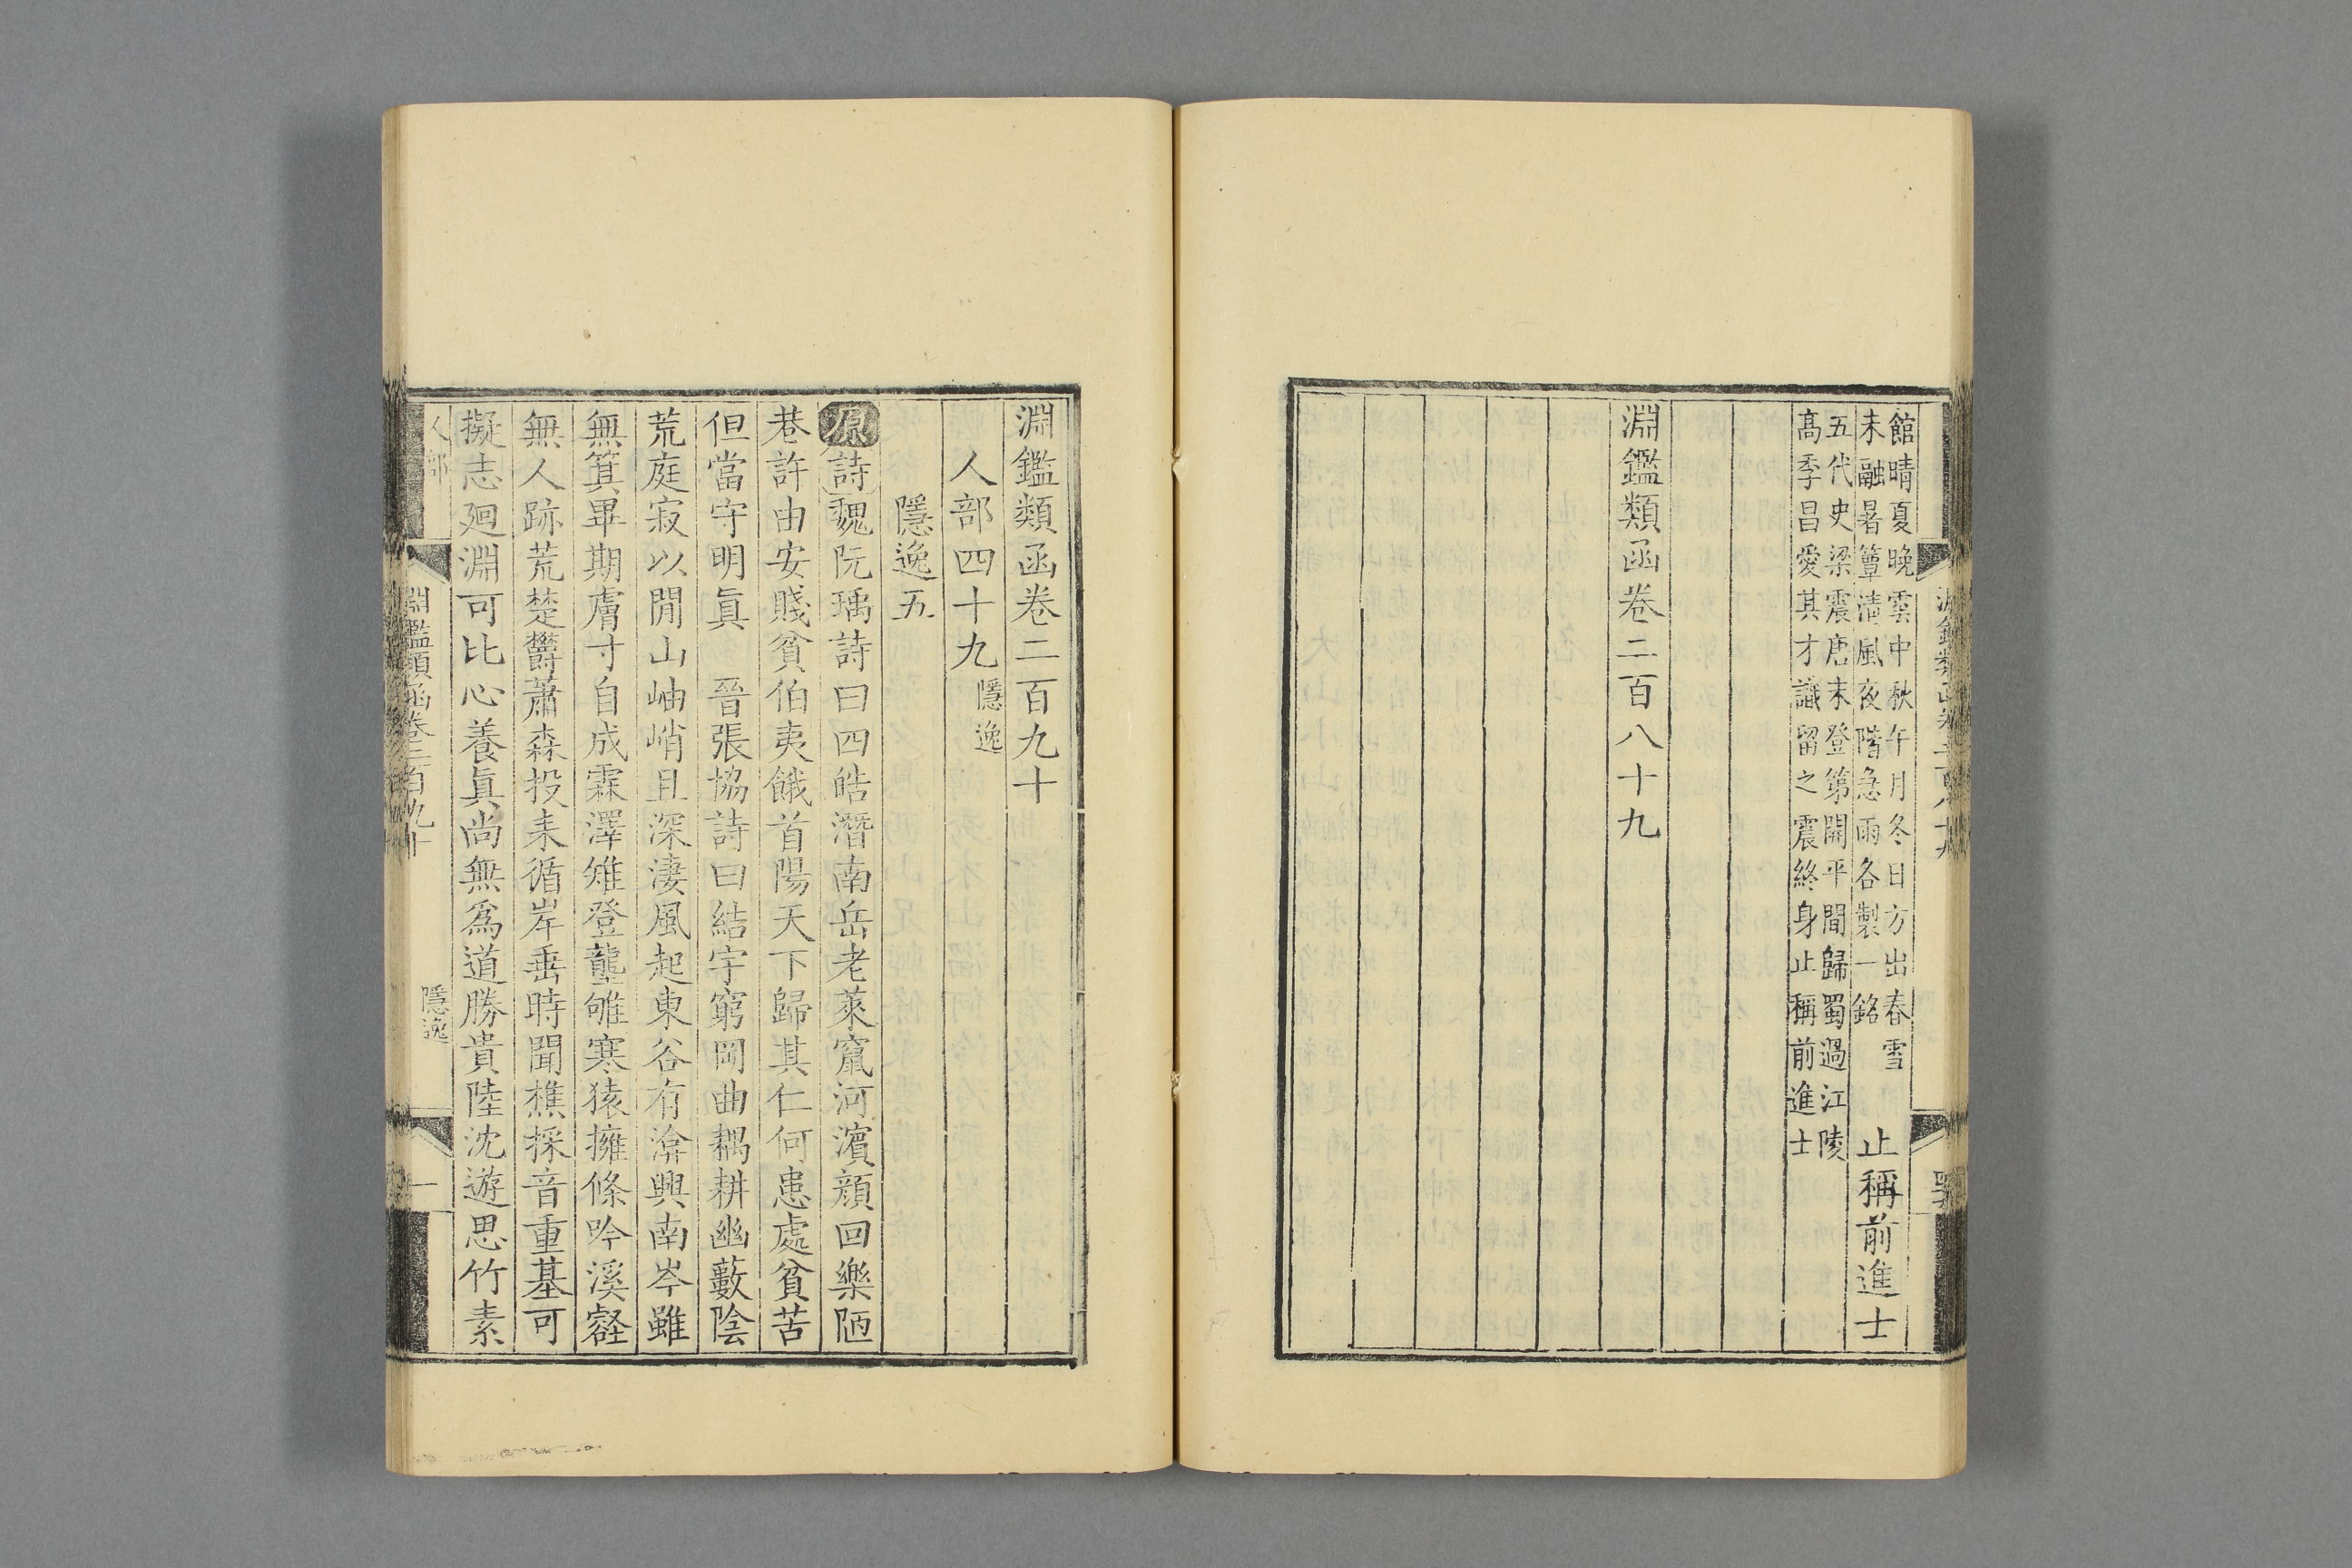 館晴夏晚雲中秋午月冬日方出春雪
未融暑簟清風夜階急雨各製一銘
止稱前進士
五代史梁震唐末登第開平間歸蜀過江陵
高季昌愛其才識留之震終身止稱前進士
淵鑑類函卷二百八十九
淵鑑類函卷二百九十
人部四十九隱逸
隱逸五
原詩魏阮瑀詩曰四皓潛南岳老萊竄河濱顔回樂陋
巷許由安賤貧伯夷餓首陽天下歸其仁何患處貧苦
但當守明眞　晉張協詩曰結宇窮岡曲耦耕幽藪陰
荒庭寂以閒山岫峭且深淒風起東谷有渰興南岑雖
無箕畢期膚寸自成霖澤雉登壟雊寒猿擁條吟溪壑
無人跡荒楚鬱蕭森投耒循岸垂時聞樵採音重基可
擬志廻淵可比心養眞尚無爲道勝貴陸沈遊思竹素
人部
淵鑑類函卷二百九十
隱逸
一